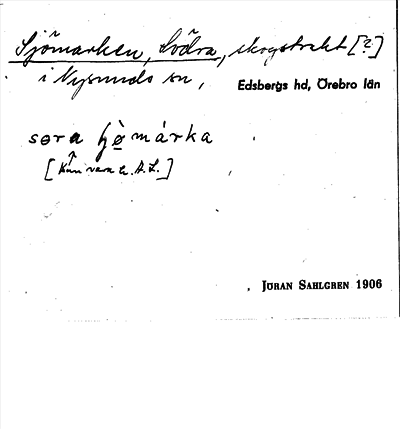 Sjömarken, Södra, skogstrakt [?]
i Nysunds sn,
Edsbergs hd, Örebro län
søra ʃø̀márka
[Kan vara A. L.]
JÖRAN SAHLGREN 1906